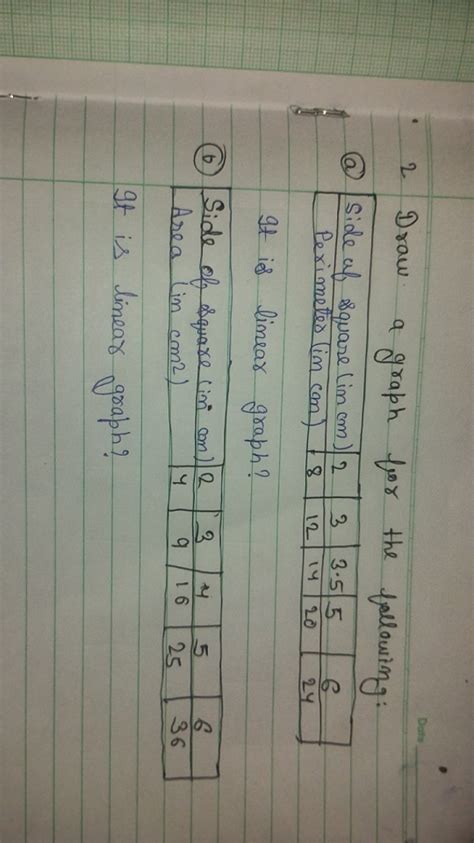 Date
2 Draw a graph for the following:
(a) Side of square (in cm) 2 3 3.5 5 6
Perimeter (in cm) 8 12 14 20 24
It is linear graph?
(b) Side of square (in cm) 2 3 4 5 6
Area (in cm2) 4 9 16 25 36
It is linear graph?